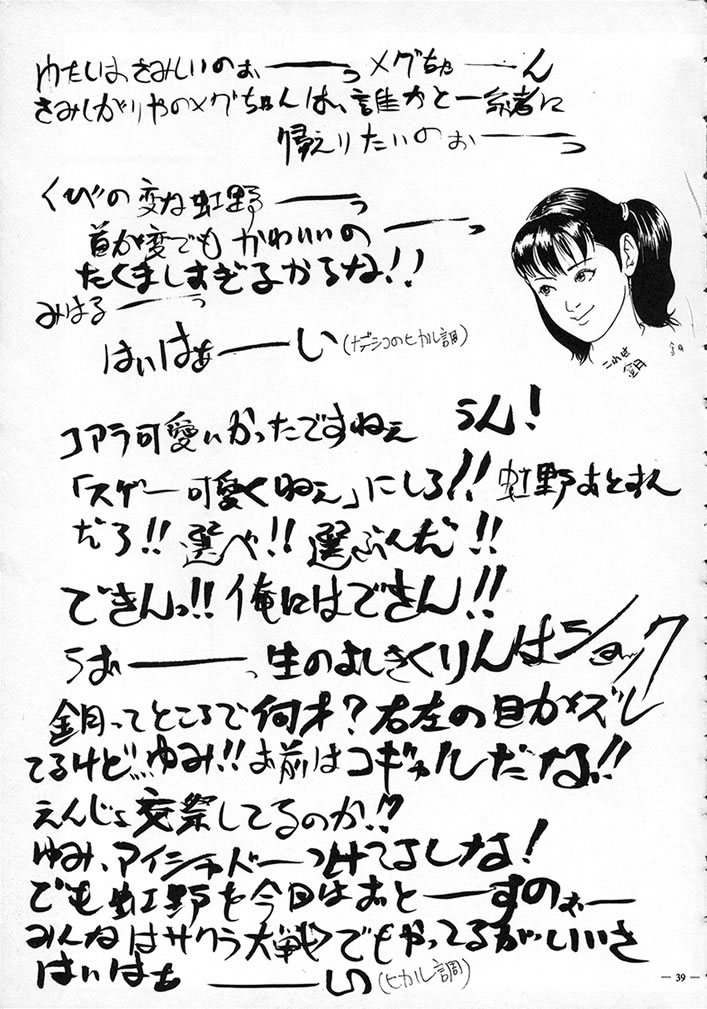 わたしはさみしいのぉーーっメグちゃーーん
さみしがりやのメグちゃんは、誰かと一緒に
帰えりたいのぉーーっ
くびの変な虹野ーーっ
首が変でもかわいいのーーっ
たくましすぎるからな!!
みはるーーっ
はぃはぁーーい(ナデシコのヒカル調)
これは
鈅
コアラ可愛いかったですねぇ うん!
「スゲー可愛くねぇ」にしろ!!虹野おとすん
だろ!!選べ!!選ぶんだ!!
できんっ!!俺にはできん!!
うおーーっ生のよしきくりんはショック
鈅ってところで何才?右左の目がズレ
てるけど…ゆみ!!お前はコギャルだな!!
えんじょ交祭してるのか!?
ゆみ、アイシャドーつけてるしな!
でも虹野を今日はおとーーすのぉー
みんなはサクラ大戦でもやってるがいいさ
はぃはぁーーい(ヒカル調)
— 39 —